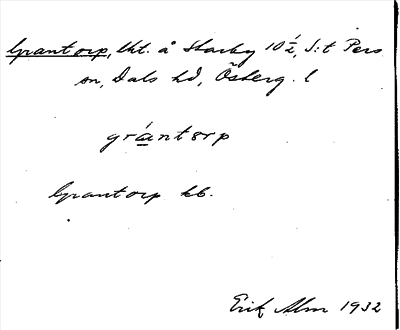 Grantorp, lht. å Starby 10½, S:t Pers
sn, Dals hd, Ösberg. l
grántorp
Grantorp kb.
Erik Alm 1932